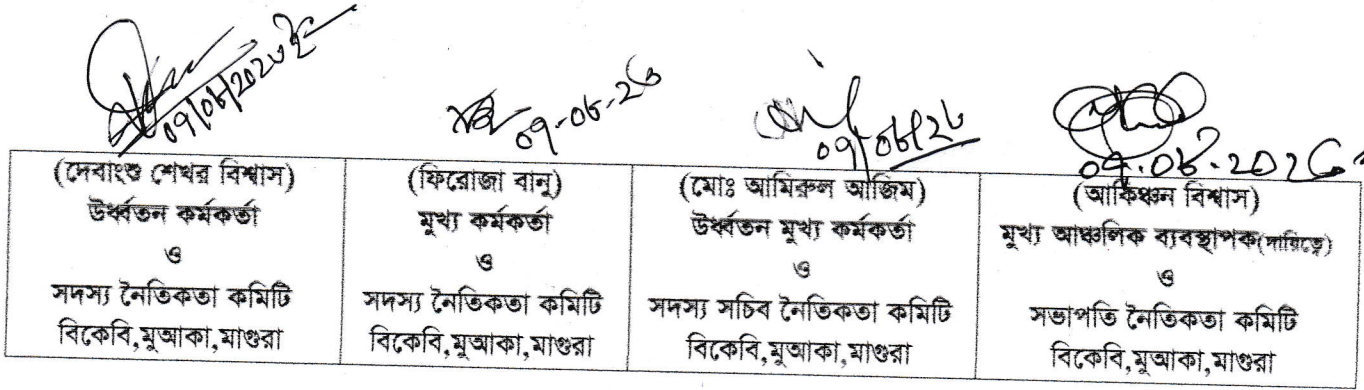 09/06/2026
09-06-26
09/06/26
09.06.2026
(দেবাংশু শেখর বিশ্বাস)
উর্ধ্বতন কর্মকর্তা
ও
সদস্য নৈতিকতা কমিটি
বিকেবি,মুআকা,মাগুরা
(ফিরোজা বানু)
মুখ্য কর্মকর্তা
ও
সদস্য নৈতিকতা কমিটি
বিকেবি,মুআকা,মাগুরা
(মোঃ আমিরুল আজিম)
উর্ধ্বতন মুখ্য কর্মকর্তা
ও
সদস্য সচিব নৈতিকতা কমিটি
বিকেবি,মুআকা,মাগুরা
(আকিঞ্চন বিশ্বাস)
মুখ্য আঞ্চলিক ব্যবস্থাপক(দায়িত্বে)
ও
সভাপতি নৈতিকতা কমিটি
বিকেবি,মুআকা,মাগুরা